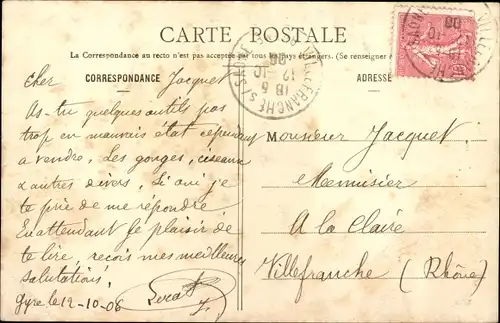 CARTE POSTALE
La Correspondance au recto n'est pas acceptée par tous les pays étrangers. (Se renseigner
CORRESPONDANCE
ADRESSE
Cher Jacquet
As-tu quelques outils pas
trop en mauvais état cependant
a vendre. Les gouges, ciseaux
& autres divers. Si oui je
te prie de me répondre.
En attendant le plaisir de
te lire, reçois mes meilleures
salutations.
12-10-06
Monsieur Jacquet
Menuisier
A la Claire
Villefranche (Rhône)
VILLEFRANCHE S/ SAONE
18 5
12-10
06